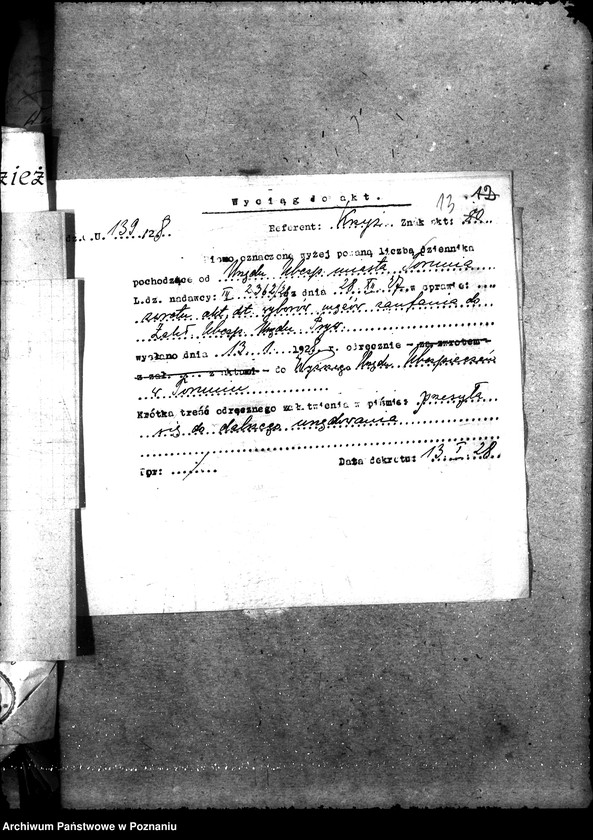 zież
Wyciąg do akt.
13 12
dz. U. 139/28
Referent: Kryż. Znak akt: 20
Pismo oznaczone wyżej podaną liczbą dziennika
pochodzące od Urzędu Ubezp. miasta Torunia
L.dz. nadawcy: IV 2362/27 z dnia 28. XII. 27. w sprawie:
zwrotu akt dt. wyborów mężów zaufania do
Zakł. Ubezp. Urzędn. Pryw.
wysłano dnia 13. 1. 1928 r. odręcznie - za zwrotem -
z zał. ... z aktami - do Wyższego Urzędu Ubezpieczeń
w Toruniu
Krótka treść odręcznego załatwienia z pisma: przesyła
się do dalszego urzędowania
Tpr: /
Data dekretu: 13 I 28.
Archiwum Państwowe w Poznaniu